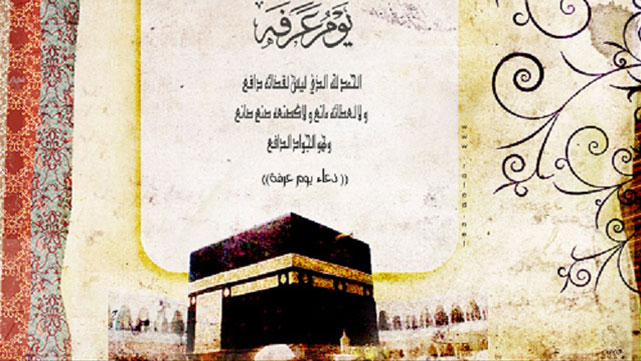 يَوْمُ عَرَفَه
الحمد لله الذي ليس لقضائه دافع
ولا لعطائه مانع ولا كصنعه صنع صانع
وهو الجواد الدافع
((دعاء يوم عرفة))
www.rafed.net